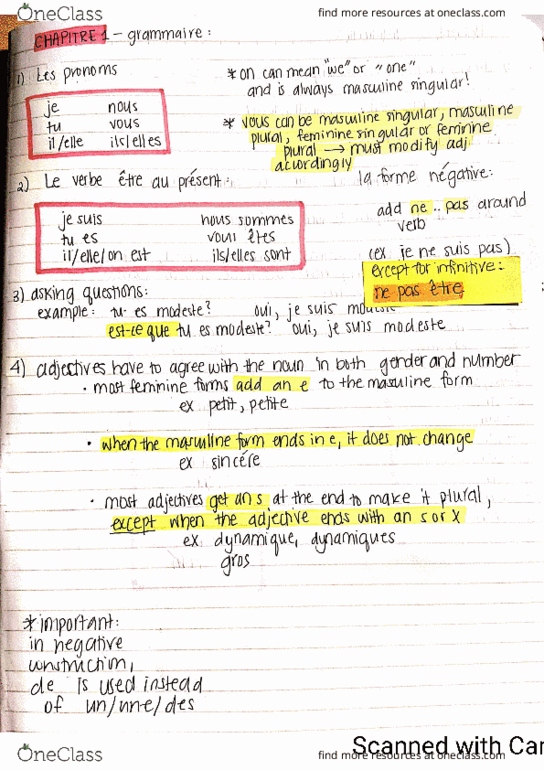 OneClass
find more resources at oneclass.com
CHAPITRE 1 - grammaire:
1) Les pronoms
je nous
tu vous
il/elle ils/elles
* on can mean "we" or "one"
and is always masculine singular!
* vous can be masculine singular, masculine
plural, feminine singular or feminine
plural → must modify adj.
acwordingly
2) Le verbe être au présent:
je suis nous sommes
tu es vous êtes
il/elle/on est ils/elles sont
la forme négative:
add ne .. pas around
verb
(ex je ne suis pas)
except for infinitive:
ne pas être
3) asking questions:
example: tu es modeste? oui, je suis modeste
est-ce que tu es modeste? oui, je suis modeste
4) adjectives have to agree with the noun in both gender and number
• most feminine forms add an e to the masculine form
ex petit, petite
• when the masculine form ends in e, it does not change
ex sincére
• most adjectives get an s at the end to make it plural,
except when the adjective ends with an s or x
ex dynamique, dynamiques
gros
*important:
in negative
construction,
de is used instead
of un/une/des
Scanned with Car
OneClass
find more resources at oneclass.com